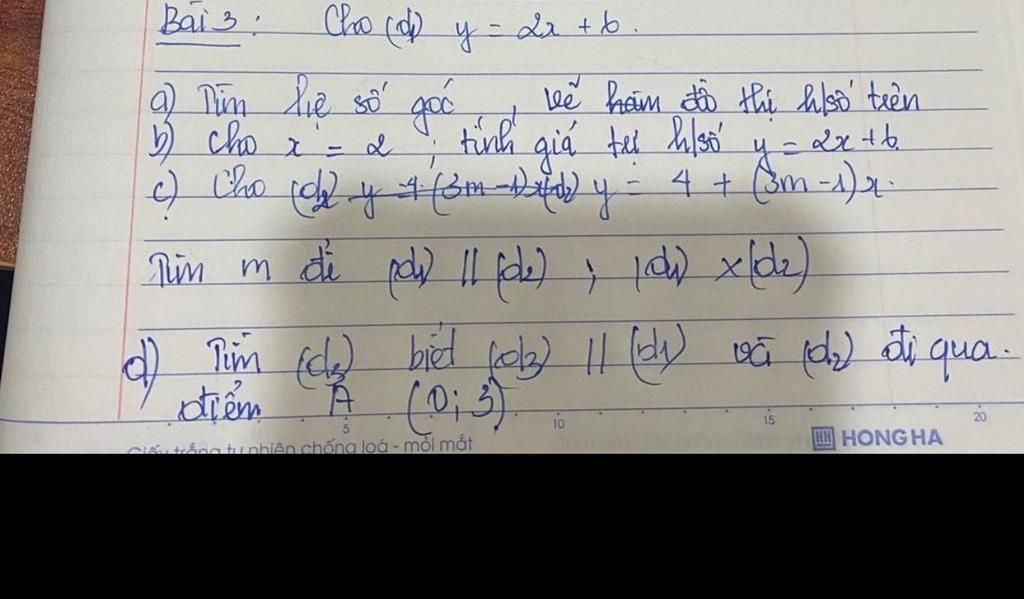 Bài 3: Cho (d1) y = 2x + 6.
a) Tìm hệ số góc, vẽ hàm đồ thị h/số trên
b) Cho x = 2; tính giá trị h/số y = 2x + 6.
c) Cho (d2) y = 4 + (3m - 1)x.
Tìm m để (d1) || (d2); (d1) x (d2)
d) Tìm (d3) biết (d3) || (d1) và (d2) đi qua.
điểm A (0; 3)
5 10 15 20
Giấy trắng tự nhiên chống loá - mỏi mắt HONG HA